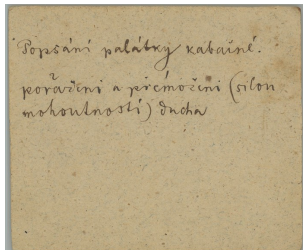 Popsání palátky kabainé.
poražení a přemožení (silou
mohoutností) ducha